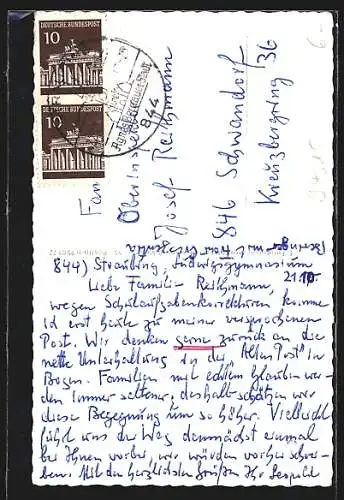 DEUTSCHE BUNDESPOST
10
DEUTSCHE BUNDESPOST
10
844
Familie
Oberinspektor
Josef Reithmann
846 Schwandorf
Kreuzbergring 36
8441 Straubing, Ludwigsgymnasium
21.10.
Liebe Familie Reithmann,
wegen Schulaufgabenkorrekturen komme
ich erst heute zu meiner versprochenen
Post. Wir denken gerne zurück an die
nette Unterhaltung in der "Alten Post" in
Bogen. Familien mit echtem Glauben wer-
den immer seltener, deshalb schätzen wir
diese Begegnung um so höher. Vielleicht
führt uns der Weg demnächst einmal
bei Ihnen vorbei, wir würden vorher schrei-
ben. Mit den herzlichsten Grüßen Ihr Leopold